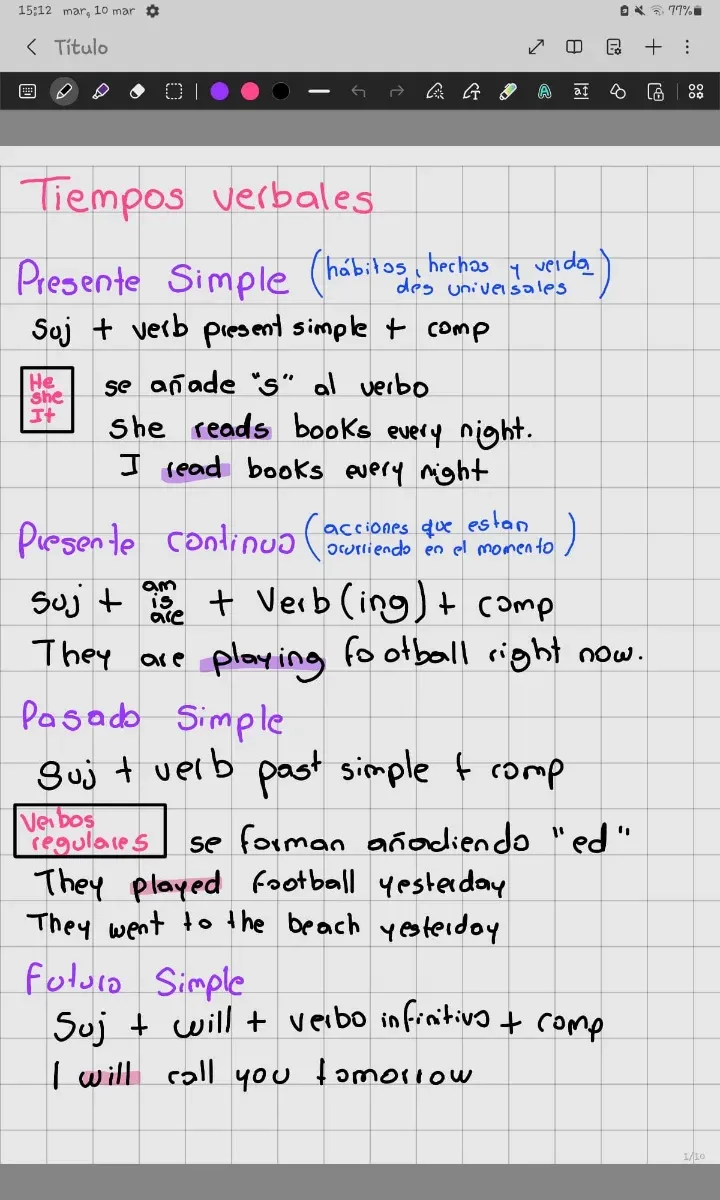 15:12 mar, 10 mar
77%
Título
Tiempos verbales
Presente Simple (hábitos, hechos y verda
des universales)
Suj + verb present simple + comp
He
she
It
se añade "s" al verbo
She reads books every night.
I read books every night
Presente continuo (acciones que estan
ocurriendo en el momento)
Suj + am
is
are + Verb (ing) + comp
They are playing football right now.
Pasado Simple
Suj + verb past simple + comp
Verbos
regulares
se forman añadiendo "ed"
They played football yesterday
They went to the beach yesterday
Futuro Simple
Suj + will + verbo infinitivo + comp
I will call you tomorrow
1/10